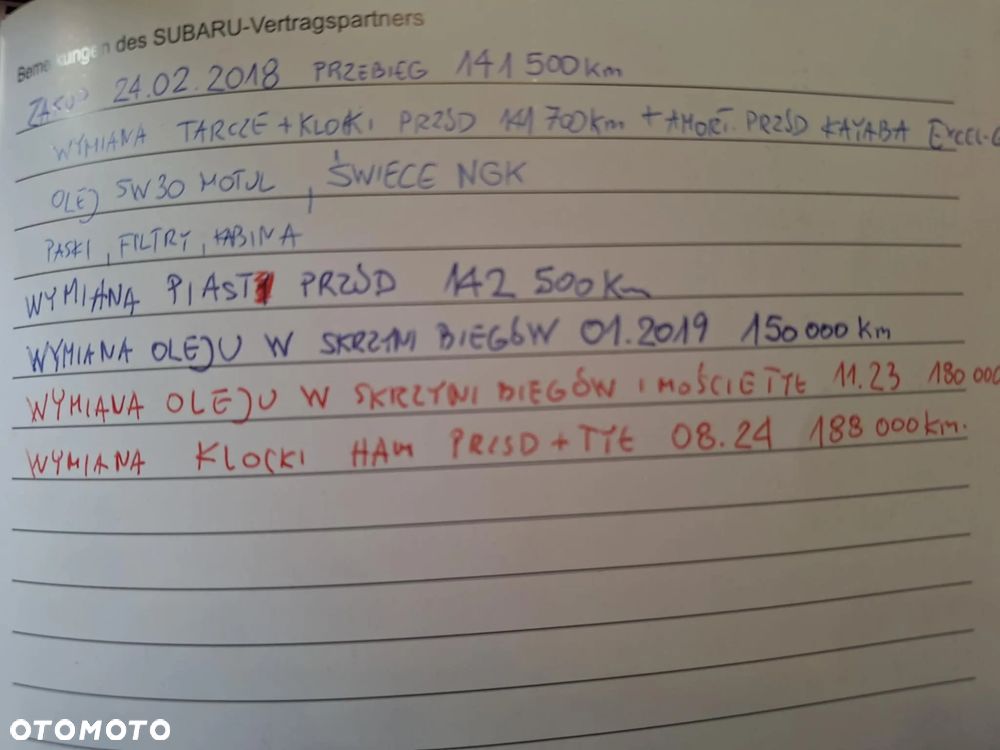 Bemerkungen des SUBARU-Vertragspartners
ZAKUP 24.02.2018 PRZEBIEG 141 500km
WYMIANA TARCZE + KLOKI PRZÓD 141 700km + AMORT. PRZÓD KAYABA EXCEL-G
OLEJ 5W30 MOTUL , ŚWIECE NGK
PASKI , FILTRY , KABINA
WYMIANA PIASTY PRZÓD 142 500Km
WYMIANA OLEJU W SKRZYNI BIEGÓW 01.2019 150 000 km
WYMIANA OLEJU W SKRZYNI BIEGÓW I MOŚCIE TYŁ 11.23 180 000
WYMIANA KLOCKI HAM PRZÓD + TYŁ 08.24 188 000km.
OTOMOTO